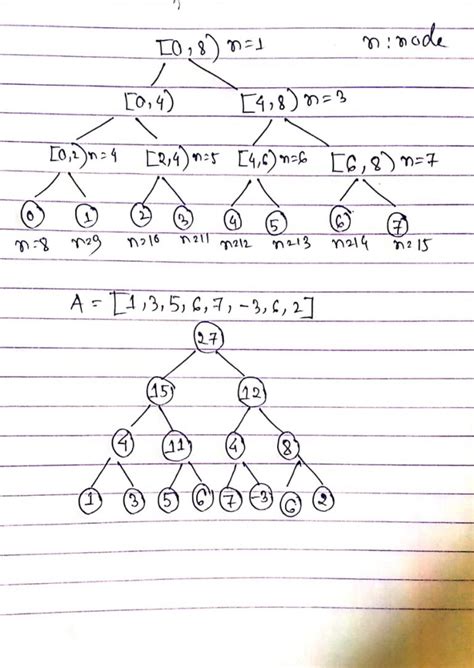 [0,8) n=1 n: node
[0,4) [4,8) n=3
[0,2) n=4 [2,4) n=5 [4,6) n=6 [6,8) n=7
0 1 2 3 4 5 6 7
n=8 n=9 n=10 n=11 n=12 n=13 n=14 n=15
A = [1,3,5,6,7,-3,6,2]
27
15 12
4 11 4 8
1 3 5 6 7 -3 6 2